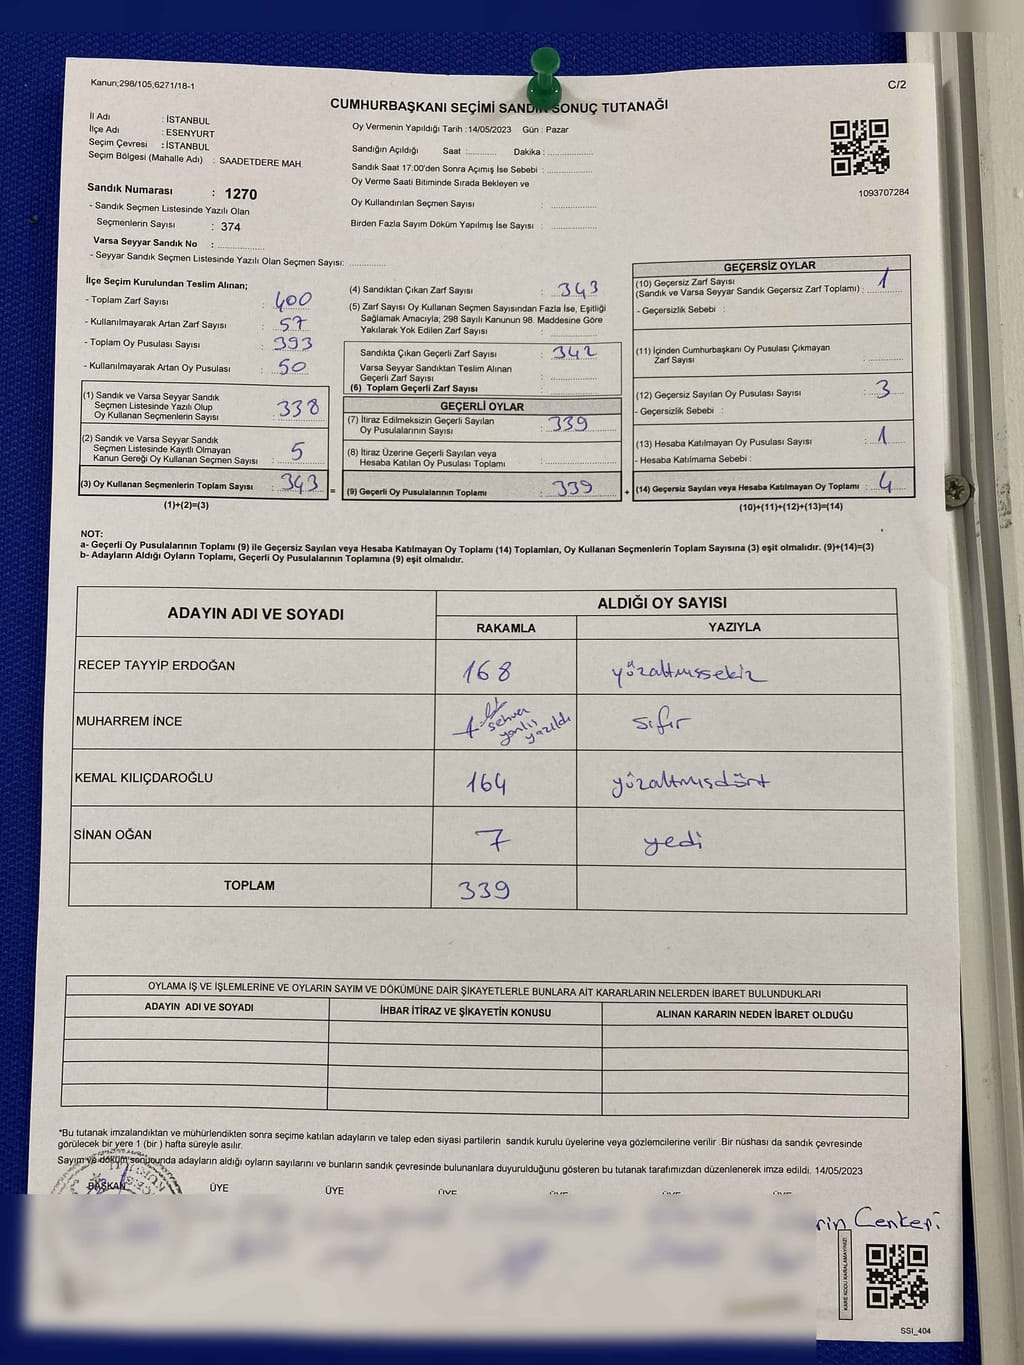 Kanun;298/105,6271/18-1
C/2
CUMHURBAŞKANI SEÇİMİ SANDIK SONUÇ TUTANAĞI
İl Adı : İSTANBUL
İlçe Adı : ESENYURT
Seçim Çevresi : İSTANBUL
Seçim Bölgesi (Mahalle Adı) : SAADETDERE MAH.
Sandık Numarası : 1270
- Sandık Seçmen Listesinde Yazılı Olan
Seçmenlerin Sayısı : 374
Varsa Seyyar Sandık No : ..............
- Seyyar Sandık Seçmen Listesinde Yazılı Olan Seçmen Sayısı: ............
Oy Vermenin Yapıldığı Tarih :14/05/2023 Gün : Pazar
Sandığın Açıldığı Saat :.......... Dakika : ...............
Sandık Saat 17:00'den Sonra Açımış İse Sebebi : ...............
Oy Verme Saati Bitiminde Sırada Bekleyen ve
Oy Kullandırılan Seçmen Sayısı : ...............
Birden Fazla Sayım Döküm Yapılmış İse Sayısı : ...............
1093707284
İlçe Seçim Kurulundan Teslim Alınan;
- Toplam Zarf Sayısı : 400
- Kullanılmayarak Artan Zarf Sayısı : 57
- Toplam Oy Pusulası Sayısı : 393
- Kullanılmayarak Artan Oy Pusulası : 50
(1) Sandık ve Varsa Seyyar Sandık
Seçmen Listesinde Yazılı Olup
Oy Kullanan Seçmenlerin Sayısı : 338
(2) Sandık ve Varsa Seyyar Sandık
Seçmen Listesinde Kayıtlı Olmayan
Kanun Gereği Oy Kullanan Seçmen Sayısı : 5
(3) Oy Kullanan Seçmenlerin Toplam Sayısı : 343 =
(1)+(2)=(3)
(4) Sandıktan Çıkan Zarf Sayısı : 343
(5) Zarf Sayısı Oy Kullanan Seçmen Sayısından Fazla İse, Eşitliği
Sağlamak Amacıyla; 298 Sayılı Kanunun 98. Maddesine Göre
Yakılarak Yok Edilen Zarf Sayısı : ...............
Sandıkta Çıkan Geçerli Zarf Sayısı : 342
Varsa Seyyar Sandıktan Teslim Alınan
Geçerli Zarf Sayısı : ...............
(6) Toplam Geçerli Zarf Sayısı : ...............
GEÇERLİ OYLAR
(7) İtiraz Edilmeksizin Geçerli Sayılan
Oy Pusulalarının Sayısı : 339
(8) İtiraz Üzerine Geçerli Sayılan veya
Hesaba Katılan Oy Pusulası Toplamı : ...............
(9) Geçerli Oy Pusulalarının Toplamı : 339 +
GEÇERSİZ OYLAR
(10) Geçersiz Zarf Sayısı
(Sandık ve Varsa Seyyar Sandık Geçersiz Zarf Toplamı) : 1
- Geçersizlik Sebebi :
(11) İçinden Cumhurbaşkanı Oy Pusulası Çıkmayan
Zarf Sayısı : ............
(12) Geçersiz Sayılan Oy Pusulası Sayısı : 3
- Geçersizlik Sebebi :
(13) Hesaba Katılmayan Oy Pusulası Sayısı : 1
- Hesaba Katılmama Sebebi :
(14) Geçersiz Sayılan veya Hesaba Katılmayan Oy Toplamı : 4
(10)+(11)+(12)+(13)=(14)
NOT:
a- Geçerli Oy Pusulalarının Toplamı (9) ile Geçersiz Sayılan veya Hesaba Katılmayan Oy Toplamı (14) Toplamları, Oy Kullanan Seçmenlerin Toplam Sayısına (3) eşit olmalıdır. (9)+(14)=(3)
b- Adayların Aldığı Oyların Toplamı, Geçerli Oy Pusulalarının Toplamına (9) eşit olmalıdır.
ADAYIN ADI VE SOYADI
ALDIĞI OY SAYISI
RAKAMLA YAZIYLA
RECEP TAYYİP ERDOĞAN 168 yüzaltmışsekiz
MUHARREM İNCE sehven yanlış yazıldı sıfır
KEMAL KILIÇDAROĞLU 164 yüzaltmışdört
SİNAN OĞAN 7 yedi
TOPLAM 339
OYLAMA İŞ VE İŞLEMLERİNE VE OYLARIN SAYIM VE DÖKÜMÜNE DAİR ŞİKAYETLERLE BUNLARA AİT KARARLARIN NELERDEN İBARET BULUNDUKLARI
ADAYIN ADI VE SOYADI İHBAR İTİRAZ VE ŞİKAYETİN KONUSU ALINAN KARARIN NEDEN İBARET OLDUĞU
*Bu tutanak imzalandıktan ve mühürlendikten sonra seçime katılan adayların ve talep eden siyasi partilerin sandık kurulu üyelerine veya gözlemcilerine verilir .Bir nüshası da sandık çevresinde
görülecek bir yere 1 (bir ) hafta süreyle asılır.
Sayım ve döküm sonucunda adayların aldığı oyların sayılarını ve bunların sandık çevresinde bulunanlara duyurulduğunu gösteren bu tutanak tarafımızdan düzenlenerek imza edildi. 14/05/2023
BAŞKAN ÜYE ÜYE
KARE KODU KARALAMAYINIZ!
SSI_404